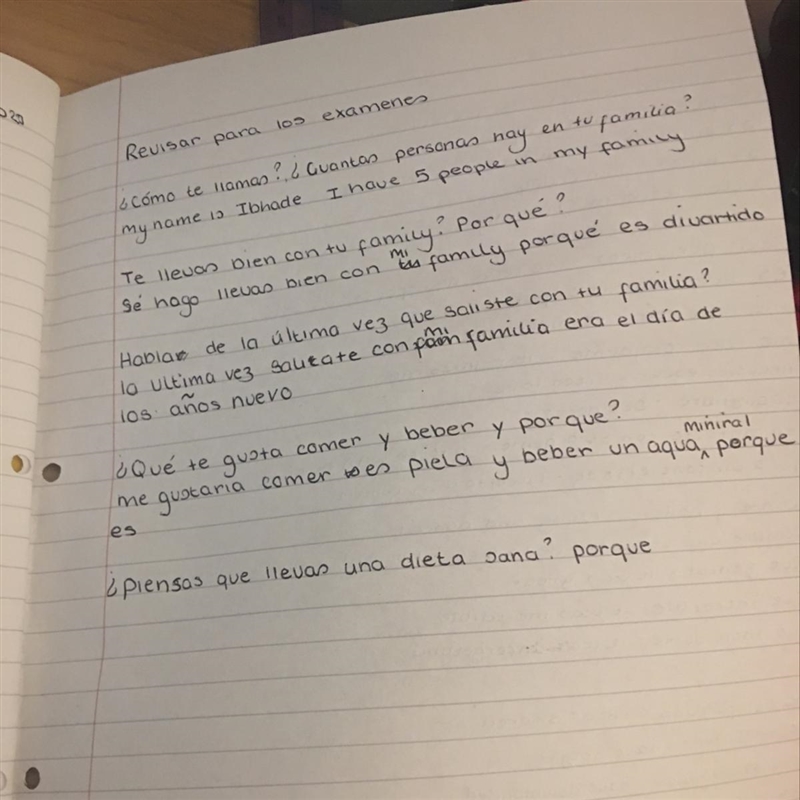 Revisar para los examenes
¿Cómo te llamas? ¿Cuantas personas hay en tu familia?
my name is Ibhade I have 5 people in my family
Te llevas bien con tu family? Por qué?
Sé hago llevas bien con mi family porqué es divartido
Hablar de la última vez que saliste con tu familia?
la ultima vez con mi familia era el día de
los años nuevo
¿Qué te gusta comer y beber y por que?
me gustaria comer es piela y beber un aqua miñiral porque
es
¿piensas que llevas una dieta sana? porque